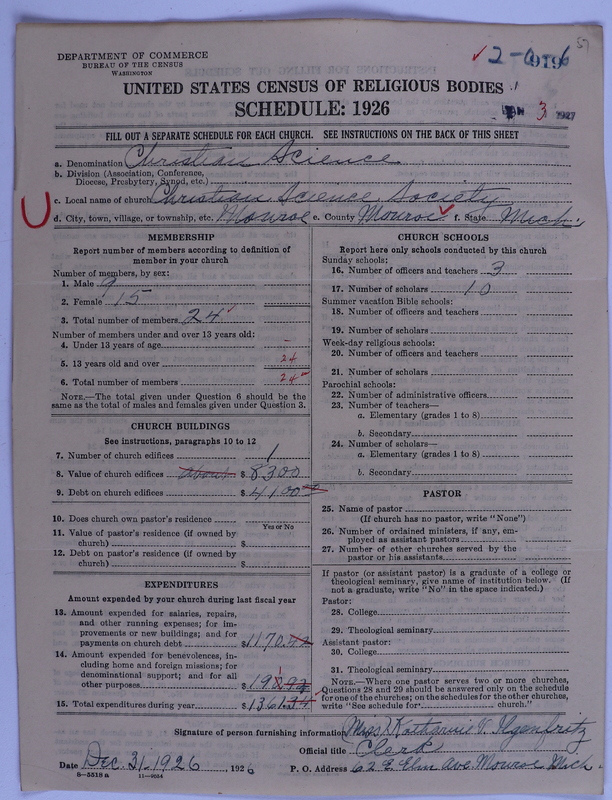 57
DEPARTMENT OF COMMERCE
BUREAU OF THE CENSUS
WASHINGTON
✓ 2-0-6
9196
UNITED STATES CENSUS OF RELIGIOUS BODIES
SCHEDULE: 1926
JAN 3 1927
FILL OUT A SEPARATE SCHEDULE FOR EACH CHURCH. SEE INSTRUCTIONS ON THE BACK OF THIS SHEET
a. Denomination Christian Science
b. Division (Association, Conference,
Diocese, Presbytery, Synod, etc.)
c. Local name of church Christian Science Society
d. City, town, village, or township, etc. Monroe e. County Monroe ✓ f. State Mich.
MEMBERSHIP
Report number of members according to definition of
member in your church
Number of members, by sex:
1. Male 9
2. Female 15
3. Total number of members 24 ✓
Number of members under and over 13 years old:
4. Under 13 years of age –
5. 13 years old and over 24
6. Total number of members 24 ✓
NOTE.—The total given under Question 6 should be the
same as the total of males and females given under Question 3.
CHURCH BUILDINGS
See instructions, paragraphs 10 to 12
7. Number of church edifices 1
8. Value of church edifices about $ 8300
9. Debt on church edifices $ 4100
10. Does church own pastor's residence
Yes or No
11. Value of pastor's residence (if owned by
church) $
12. Debt on pastor's residence (if owned by
church) $
EXPENDITURES
Amount expended by your church during last fiscal year
13. Amount expended for salaries, repairs,
and other running expenses; for im-
provements or new buildings; and for
payments on church debt $ 1170.42
14. Amount expended for benevolences, in-
cluding home and foreign missions; for
denominational support; and for all
other purposes $
15. Total expenditures during year $ 1361.34
CHURCH SCHOOLS
Report here only schools conducted by this church
Sunday schools:
16. Number of officers and teachers 3
17. Number of scholars 10
Summer vacation Bible schools:
18. Number of officers and teachers
19. Number of scholars
Week-day religious schools:
20. Number of officers and teachers
21. Number of scholars
Parochial schools:
22. Number of administrative officers
23. Number of teachers—
a. Elementary (grades 1 to 8)
b. Secondary
24. Number of scholars—
a. Elementary (grades 1 to 8)
b. Secondary
PASTOR
25. Name of pastor
(If church has no pastor, write "None")
26. Number of ordained ministers, if any, em-
ployed as assistant pastors
27. Number of other churches served by the
pastor or his assistants
If pastor (or assistant pastor) is a graduate of a college or
theological seminary, give name of institution below. (If
not a graduate, write "No" in the space indicated.)
Pastor:
28. College
29. Theological seminary
Assistant pastor:
30. College
31. Theological seminary
NOTE.—Where one pastor serves two or more churches,
Questions 28 and 29 should be answered only on the schedule
for one of the churches; on the schedules for the other churches,
write "See schedule for church."
Signature of person furnishing information Miss Katharine V. Ilgenfritz
Official title Clerk
Date Dec. 31, 1926, 1926 P. O. Address 62 E. Elm Ave. Monroe Mich
8—5518 a 11—9054